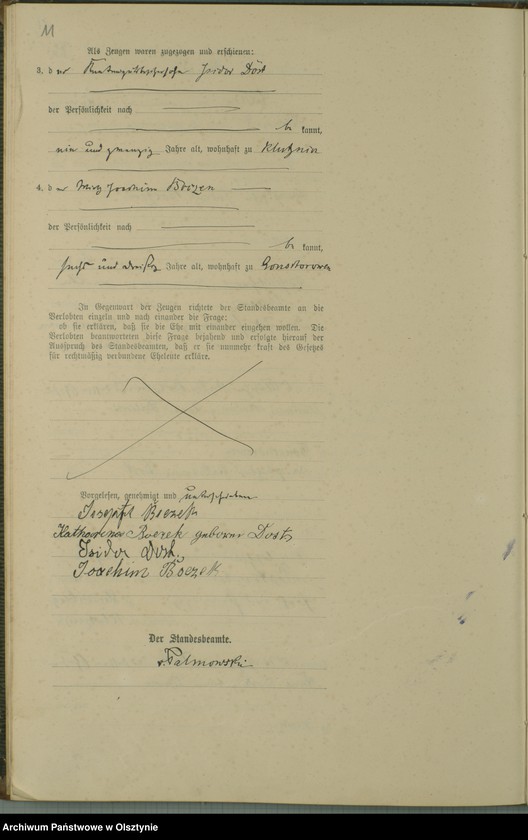 11
Als Zeugen waren zugezogen und erschienen:
3. der Isidor Dost
der Persönlichkeit nach
bekannt,
ein und zwanzig Jahre alt, wohnhaft zu Klutznin
4. der Joachim Boczek
der Persönlichkeit nach
bekannt,
sechs und dreißig Jahre alt, wohnhaft zu
In Gegenwart der Zeugen richtete der Standesbeamte an die
Verlobten einzeln und nach einander die Frage:
ob sie erklären, daß sie die Ehe mit einander eingehen wollen. Die
Verlobten beantworteten diese Frage bejahend und erfolgte hierauf der
Ausspruch des Standesbeamten, daß er sie nunmehr kraft des Gesetzes
für rechtmäßig verbundene Eheleute erkläre.
Vorgelesen, genehmigt und unterschrieben
Joseph Boczek
Katharina Boczek geborene Dost
Isidor Dost
Joachim Boczek
Der Standesbeamte.
v. Palmowski
Archiwum Państwowe w Olsztynie